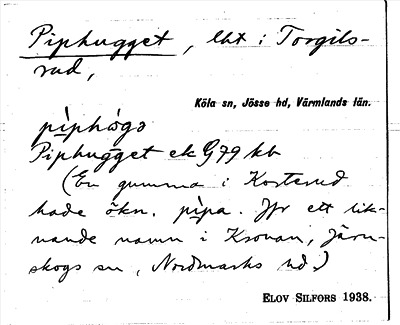 Piphugget, lht i Torgils-
rud,
Köla sn, Jösse hd, Värmlands län.
pìphógə
Piphugget ek G79 kb
(En gumma i Kosterud
hade ökn. pìpa. Jfr ett lik-
nande namn i Kronan, Järn-
skogs sn, Nordmarks hd.)
ELOV SILFORS 1938.